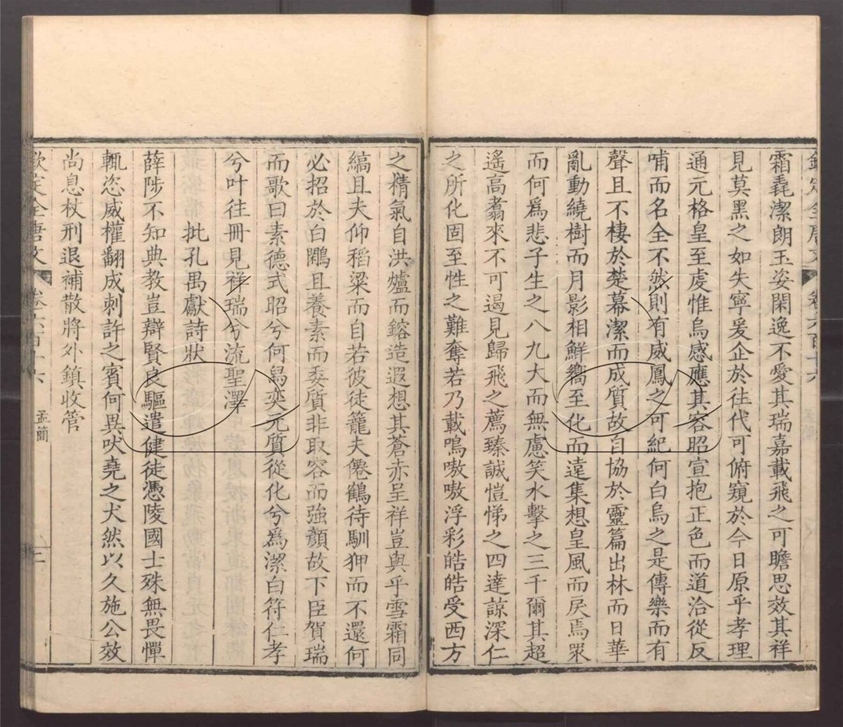 欽定全唐文 卷六百十六
霜毳潔朗玉姿閑逸不愛其瑞嘉載飛之可瞻思效其祥
見莫黑之如失寧爰企於往代可俯窺於今日原乎孝理
通元格皇至虔惟烏感應其容昭宣抱正色而道洽從反
哺而名全不然則有威鳳之可紀何白烏之是傳樂而有
聲且不棲於楚幕潔而成質故自協於靈篇出林而日華
亂動繞樹而月影相鮮嚮至化而遠集想皇風而戾焉眾
而何為悲子生之八九大而無慮笑水擊之三千爾其超
遙高翥來不可遏見歸飛之薦臻誠愷悌之四達諒深仁
之所化固至性之難奪若乃載鳴嗷嗷浮彩皓皓受西方
之精氣自洪爐而鎔造遐想其蒼赤呈祥豈與乎雪霜同
縞且夫仰稻粱而自若彼徒籠夫僊鶴待馴狎而不還何
必招於白鵰且養素而委質非取容而強顏故下臣賀瑞
而歌曰素德式昭兮何鳥奕元質從化兮為潔白符仁孝
兮叶往冊見祥瑞兮流聖澤
批孔禺獻詩狀
薛陟不知典教豈辯賢良驅遣健徒憑陵國士殊無畏憚
輒恣威權翻成刺許之賓何異吠堯之犬然以久施公效
尚息杖刑退補散將外鎮收管
欽定全唐文 卷六百十六 孟簡 二